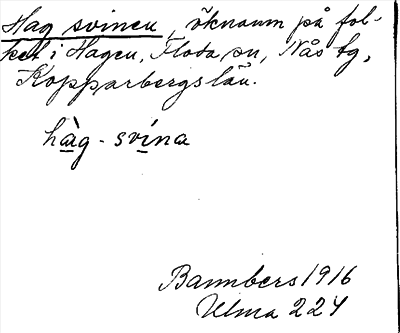 Hag svinen, öknamn på fol-
ket i Hagen, Floda sn, Nås tg,
Kopparbergs län.
hàg-svína
Bannbers 1916
Ulma 224